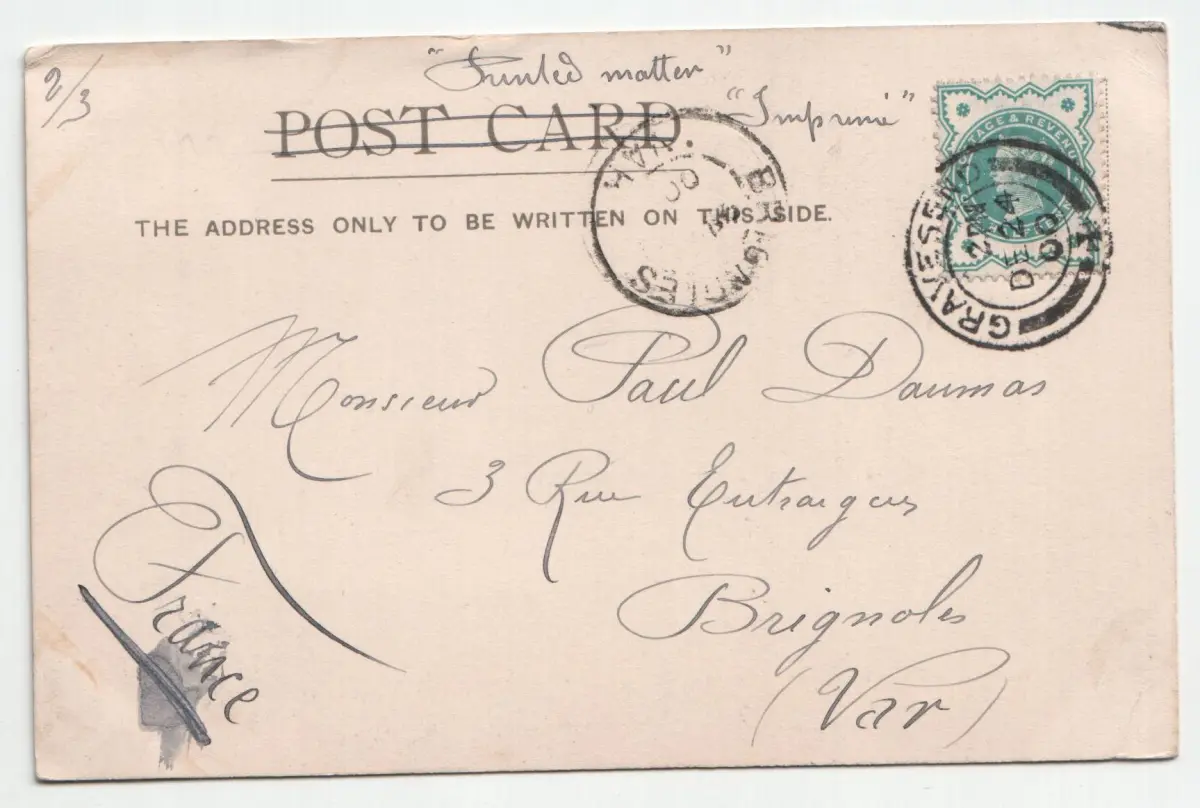 2/3
"Printed matter"
"Imprimé"
POST CARD
THE ADDRESS ONLY TO BE WRITTEN ON THIS SIDE.
POSTAGE & REVENUE
GRAVESEND
DE 24
00
BRIGNOLES
VAR
00
Monsieur Paul Daumas
3 Rue Entraigues
Brignoles
(Var)
France